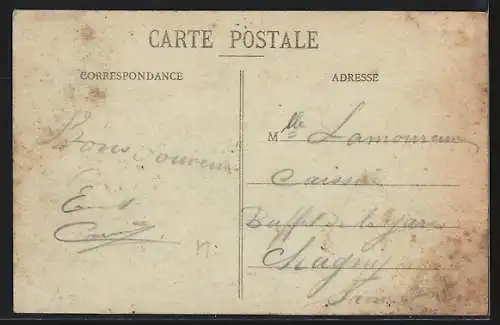 CARTE POSTALE
CORRESPONDANCE
ADRESSE
Bons Souvenirs
Mlle Lamoureux
Caissière
Buffet de la Gare
Chagny